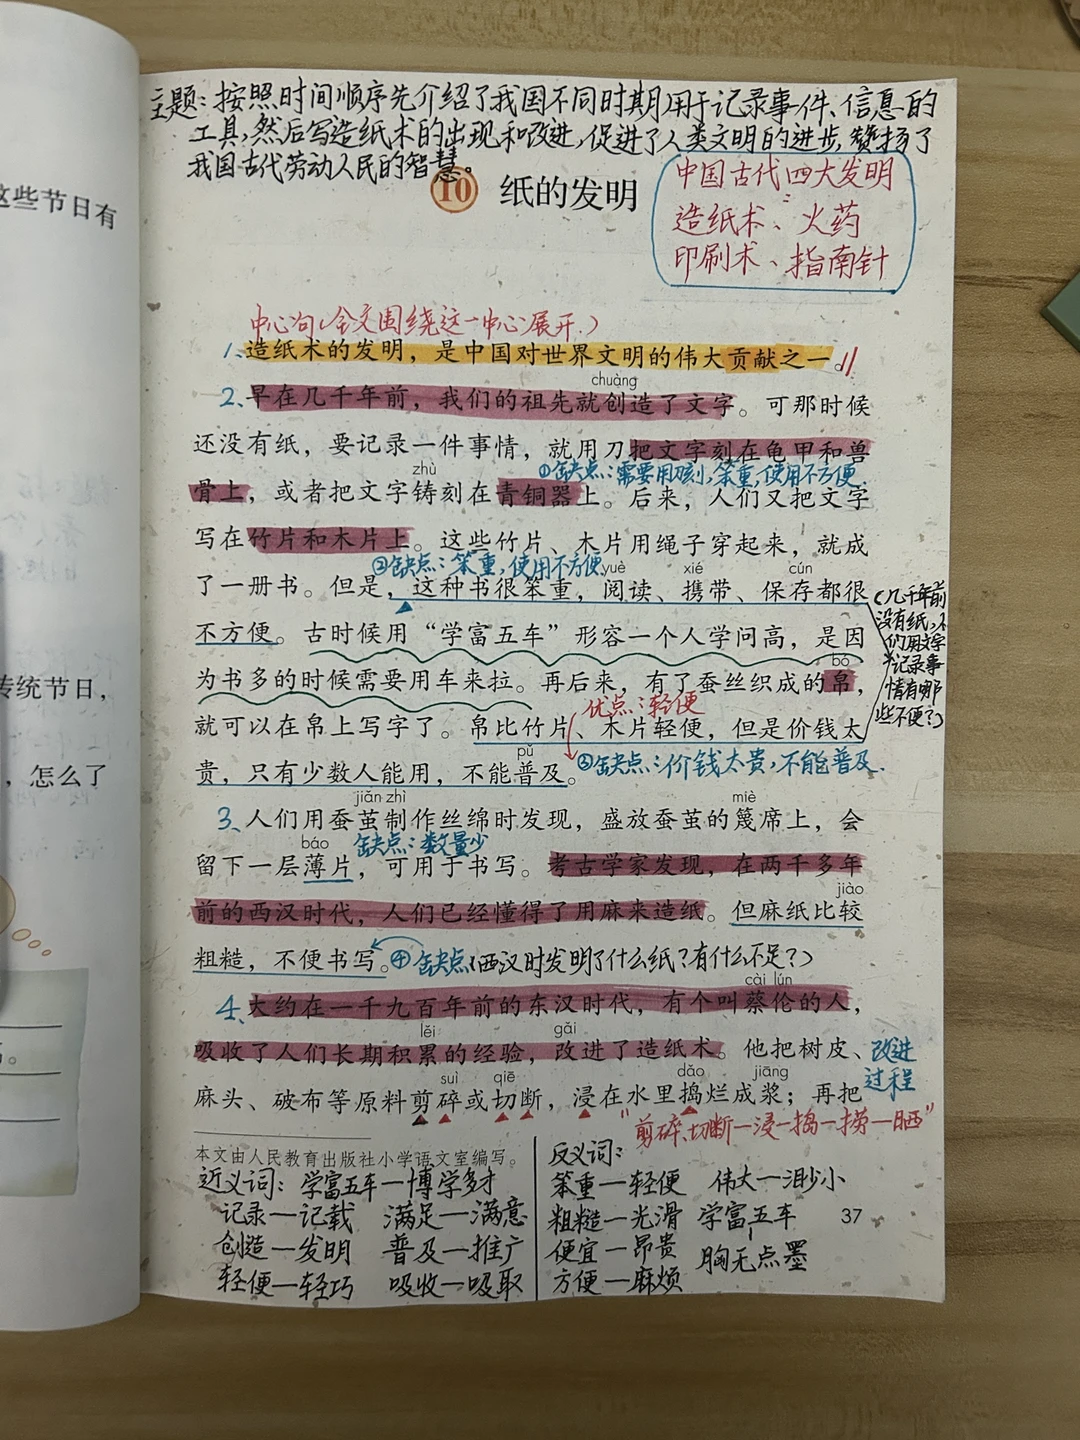 主题：按照时间顺序先介绍了我国不同时期用于记录事件、信息的
工具，然后写造纸术的出现和改进，促进了人类文明的进步，赞扬了
我国古代劳动人民的智慧。
10 纸的发明
中国古代四大发明
造纸术、火药
印刷术、指南针
这些节日有
传统节日，
，怎么了
中心句（全文围绕这一中心展开.）
1、造纸术的发明，是中国对世界文明的伟大贡献之一。
chuàng
2、早在几千年前，我们的祖先就创造了文字。可那时候
还没有纸，要记录一件事情，就用刀把文字刻在龟甲和兽
①缺点：需要用刀刻，笨重，使用不方便.
zhù
骨上，或者把文字铸刻在青铜器上。后来，人们又把文字
写在竹片和木片上。这些竹片、木片用绳子穿起来，就成
②缺点：笨重，使用不方便
yuè xié cún
了一册书。但是，这种书很笨重，阅读、携带、保存都很
不方便。古时候用“学富五车”形容一个人学问高，是因
bó
为书多的时候需要用车来拉。再后来，有了蚕丝织成的帛，
优点：轻便
就可以在帛上写字了。帛比竹片、木片轻便，但是价钱太
pǔ
贵，只有少数人能用，不能普及。
③缺点：价钱太贵，不能普及.
（几千年前
没有纸，人
们用文字
记录事
情有哪
些不便？）
jiǎn zhì miè
3、人们用蚕茧制作丝绵时发现，盛放蚕茧的篾席上，会
báo
缺点：数量少
留下一层薄片，可用于书写。考古学家发现，在两千多年
jiào
前的西汉时代，人们已经懂得了用麻来造纸。但麻纸比较
粗糙，不便书写。④缺点（西汉时发明了什么纸？有什么不足？）
cài lún
4、大约在一千九百年前的东汉时代，有个叫蔡伦的人，
lěi gǎi
吸收了人们长期积累的经验，改进了造纸术。他把树皮、
改进
过程
suì qiē dǎo jiāng
麻头、破布等原料剪碎或切断，浸在水里捣烂成浆；再把
“剪碎、切断一浸一捣一捞一晒”
本文由人民教育出版社小学语文室编写。
近义词：学富五车一博学多才
记录一记载 满足一满意
创造一发明 普及一推广
轻便一轻巧 吸收一吸取
反义词：
笨重一轻便 伟大一渺小
粗糙一光滑 学富五车
便宜一昂贵 胸无点墨
方便一麻烦
37